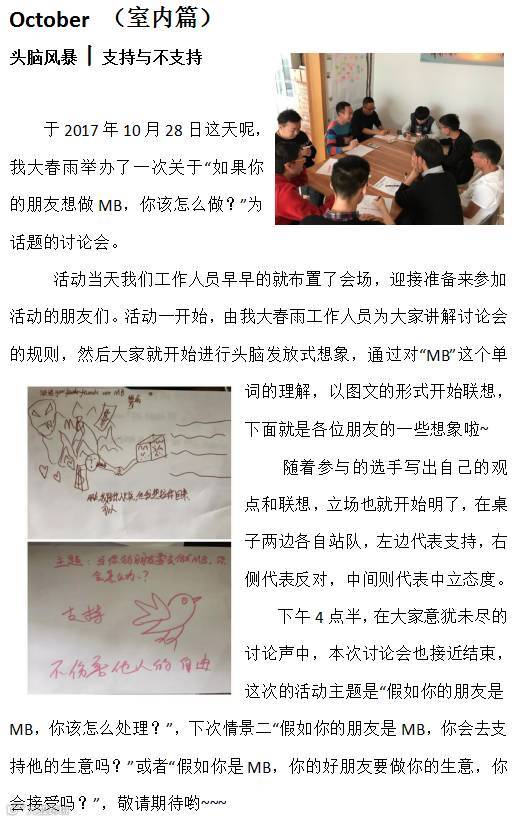 October （室内篇）
头脑风暴 | 支持与不支持
于 2017 年 10 月 28 日这天呢，
我大春雨举办了一次关于“如果你
的朋友想做 MB，你该怎么做？”为
话题的讨论会。
活动当天我们工作人员早早的就布置了会场，迎接准备来参加
活动的朋友们。活动一开始，由我大春雨工作人员为大家讲解讨论会
的规则，然后大家就开始进行头脑发放式想象，通过对“MB”这个单
词的理解，以图文的形式开始联想，
下面就是各位朋友的一些想象啦~
随着参与的选手写出自己的观
点和联想，立场也就开始明了，在桌
子两边各自站队，左边代表支持，右
侧代表反对，中间则代表中立态度。
主题：当你的朋友要去做MB，你
会怎么办？
支持
不伤害他人的自由
下午 4 点半，在大家意犹未尽的
讨论声中，本次讨论会也接近结束，
这次的活动主题是“假如你的朋友是
MB，你该怎么处理？”，下次情景二“假如你的朋友是 MB，你会去支
持他的生意吗？”或者“假如你是 MB，你的好朋友要做你的生意，你
会接受吗？”，敬请期待哟~~~